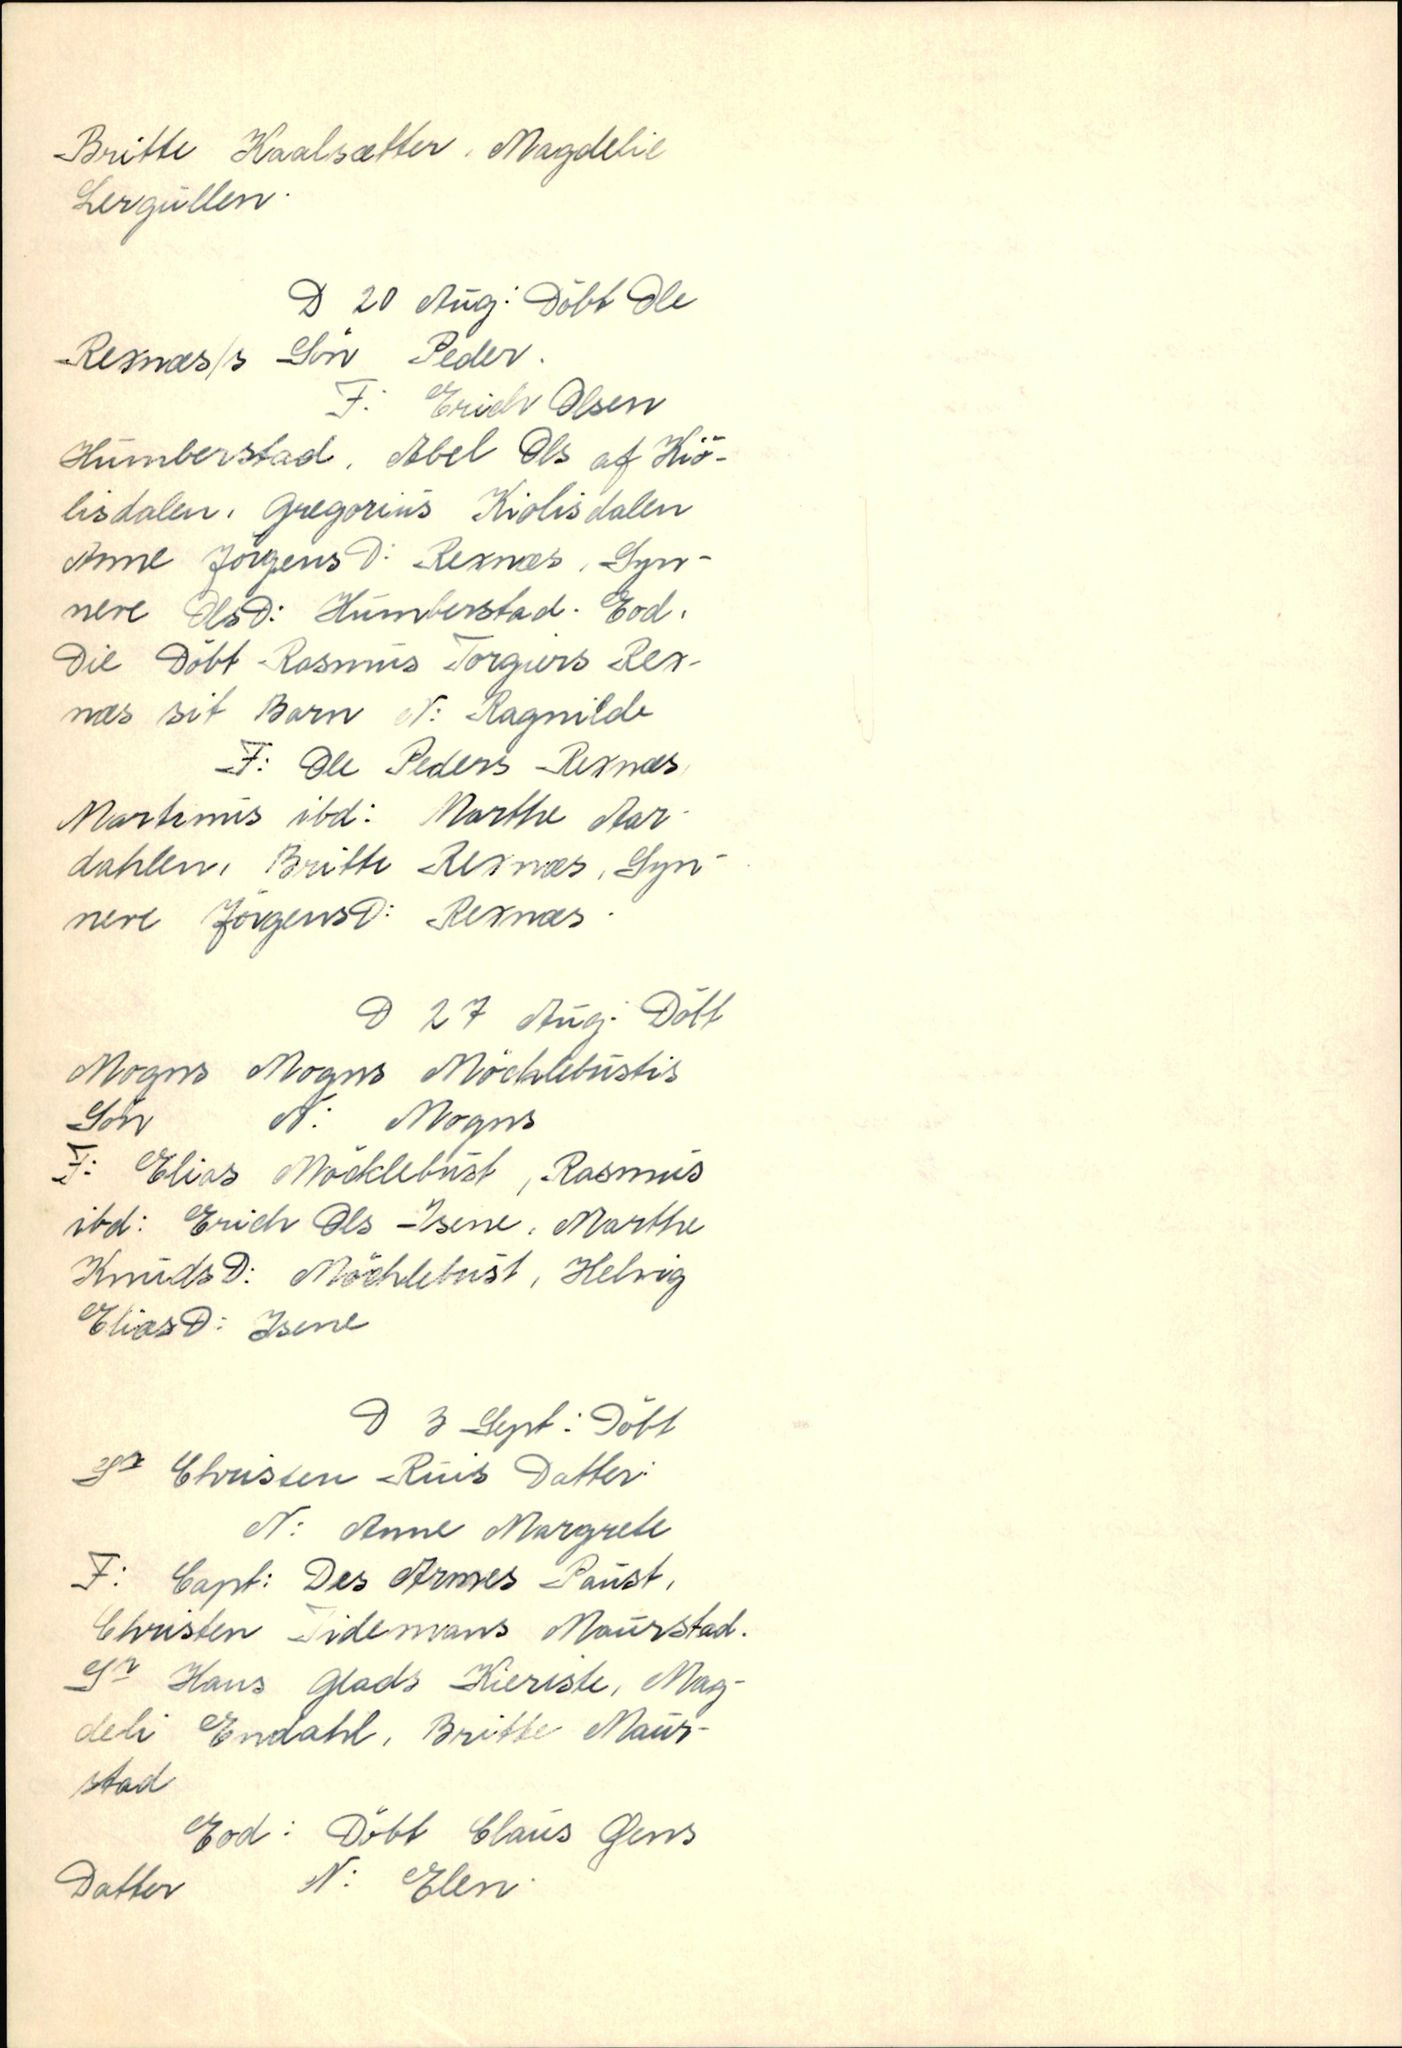 Britte Kaalsætter. Magdelie
Lergullen.
D 20 Aug: Döbt Ole
Rexnæs/s Sön Peder.
F: Erich Olsen
Humberstad. Abel Ols af Kiö-
lisdalen. Gregorius Kiolisdalen
Anne JörgensD: Rexnæs. Syn-
neve OlsD: Humberstad. Eod.
Die Döbt Rasmus Torgiers Rex-
næs sit Barn N: Ragnilde
F: Ole Peders Rexnæs,
Martinus ibd: Marthe Aar-
dahlen, Britte Rexnæs, Syn-
neve JörgensD: Rexnæs.
D 27 Aug: Döbt
Mogns Mogns Möchlebustis
Sön N: Mogns
F: Elias Möcklebust, Rasmus
ibd: Erich Ols Isene, Marthe
KnudsD: Möchlebust, Helvig
EliasD: Isene
D 3 Sept: Döbt
Sr Christen Ruus Datter:
N: Anne Margrete
F: Capt: Des Armes Paust,
Christen Tidemans Maurstad.
Sr Hans Glads Kieriste, Mag-
deli Endahl, Britte Maur-
stad
Eod: Döbt Claus Gens
Datter N: Elen.